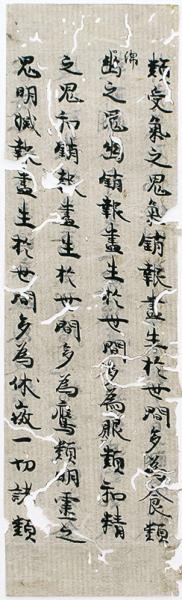 類受氣之鬼氣銷報盡生於世間多為食類
綿幽之鬼幽銷報盡生於世間多為服類和精
之鬼和銷報盡生於世間多為應類明靈之
鬼明滅報盡生於世間多為休徵一切諸類